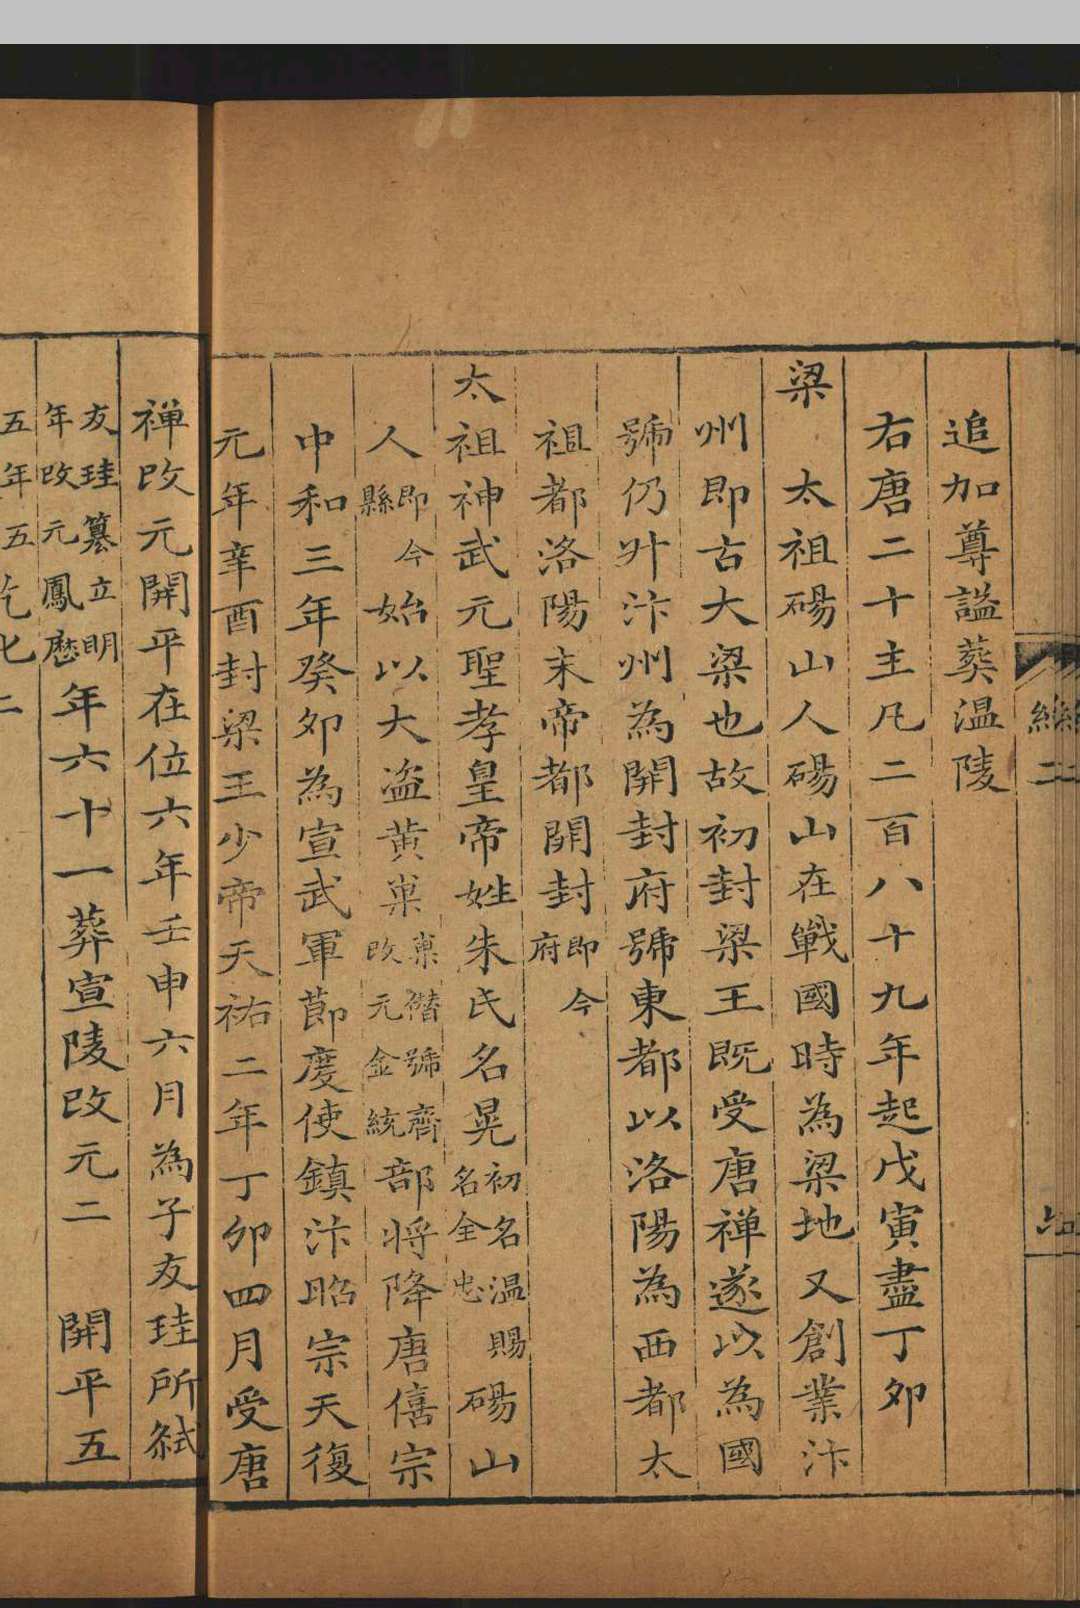 追加尊謚葬温陵
右唐二十主凡二百八十九年起戊寅盡丁夘
梁　太祖碭山人碭山在戰國時為梁地又創業汴
州即古大梁也故初封梁王既受唐禅遂以為國
號仍升汴州為開封府號東都以洛陽為西都太
祖都洛陽末帝都開封即今府
太祖神武元聖孝皇帝姓朱氏名晃初名温賜名全忠碭山
人即今縣始以大盗黄巢巢僭號齊改元金統部将降唐僖宗
中和三年癸夘為宣武軍節度使鎮汴昭宗天復
元年辛酉封梁王少帝天祐二年丁夘四月受唐
禅改元開平在位六年壬申六月為子友珪所弑
友珪簒立明年改元鳳歴年六十一葬宣陵改元二　開平五